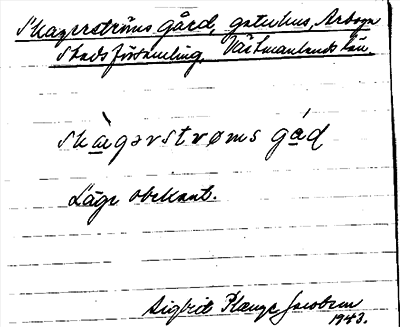 Skagerströms gård, gatuhus, Arboga
Stadsförsamling. Västmanlands län.
skàgərstrøms gád
Läge obekant.
Sigbrit Plænge Jacobson
1943.